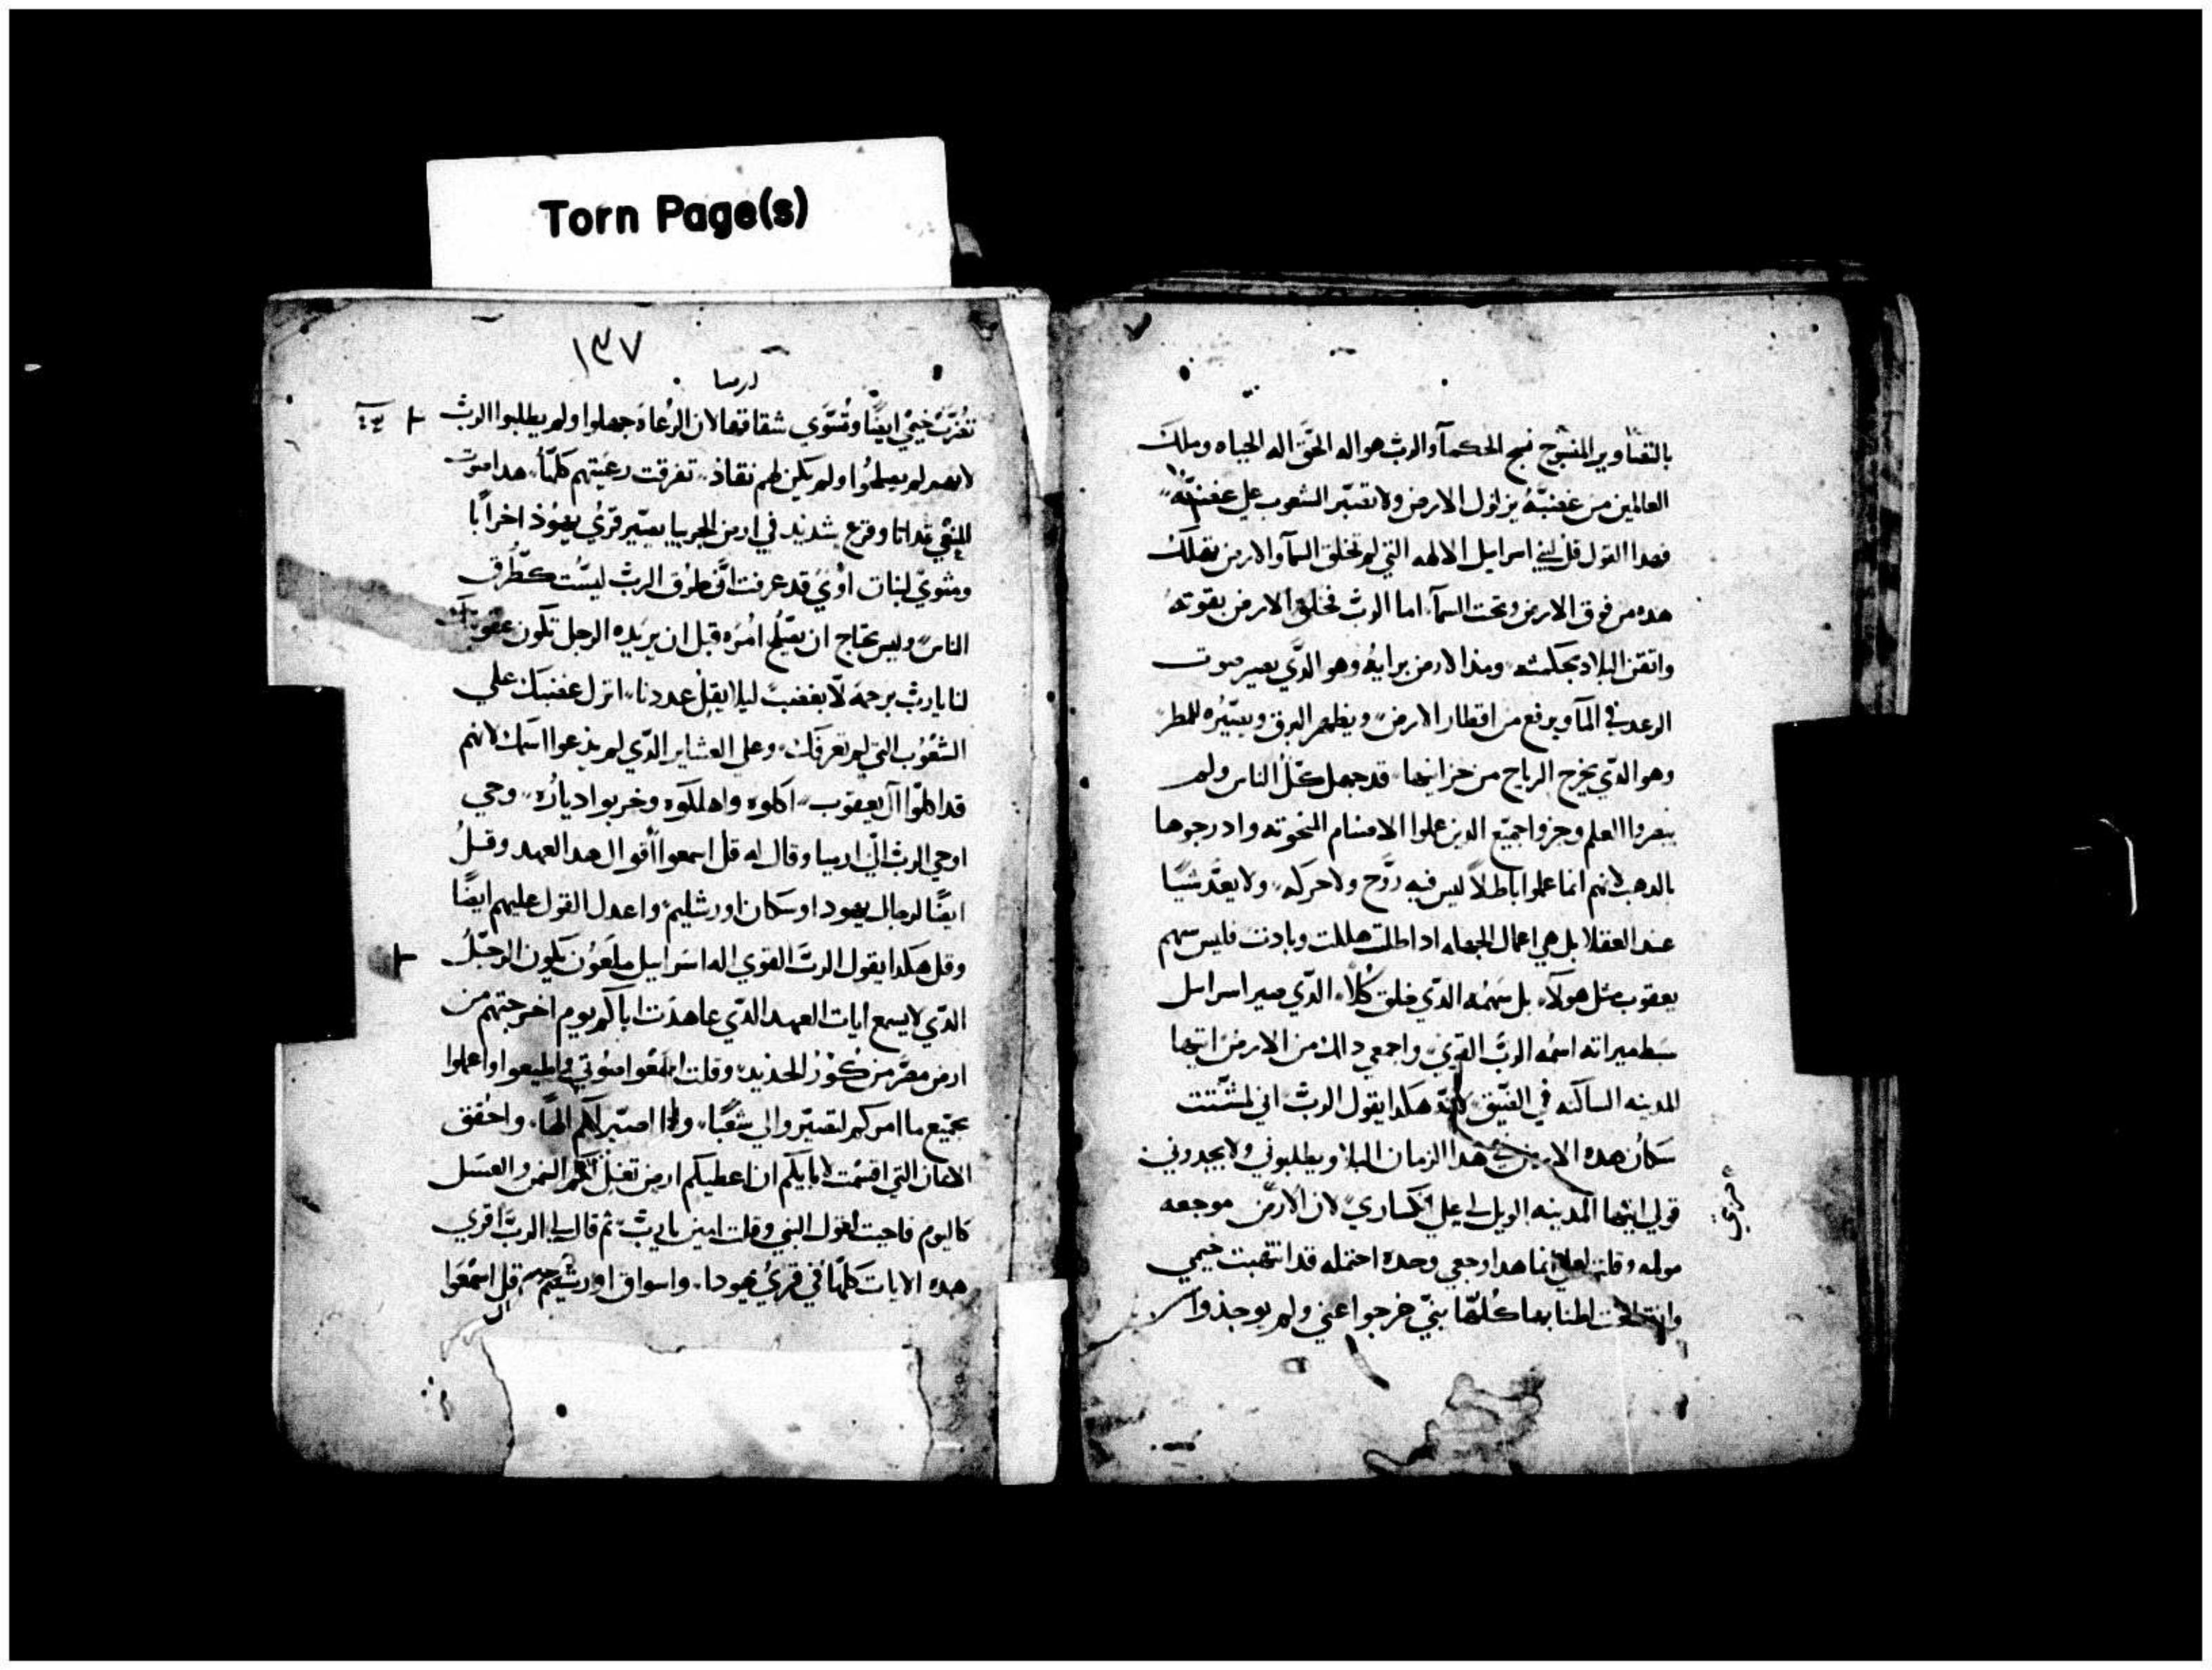 Torn Page(s)
بالتصاوير المنسوج نسج الحكمآ والرب هو اله الحق اله الحياه وملك
العالمين من غضبه يزلزل الارض ولا تصبر الشعوب علي غضبه
فهدا القول قل لبني اسراييل الالهه التي لم تخلق السمآ والارض تهلك
هده من فوق الارض وتحت السمآ اما الرب فخلق الارض بقوته
واتقن البلاد بحكمته ومد الارض برايه وهو الدي يصير صوت
الرعد في المآ ويرفع من اقطار الارض ويظهر البرق ويصيره للمطر
وهو الدي يخرج الرياح من خزاينها قد جهل كل الناس ولم
يبصروا العلم وخزوا جميع الدين عملوا الاصنام المنحوته وادرجوها
بالدهب لانهم انما عملوا باطلاً ليس فيه روح ولا حركه ولا يعد شيا
عند العقلا بل هي اعمال الجهاله ادا طلت هللت وبادت فليس سهم
يعقوب مثل هولآ بل سهمه الدي خلق كلا الدي صير اسراييل
سبط ميراثه اسمه الرب القوي واجمعي دالك من الارض ايتها
المدينه الساكنه في الضيق لانه هكدا يقول الرب اني لمشتت
سكان هده الارض في هدا الزمان البلا ويطلبوني ولا يجدوني
قولي ايتها المدينه الويل لي علي انكساري لان الارض موجعه
مولمه وقلت لعل انما هدا وجعي وحده احتمله قد انتهبت خيمي
اطنابها كلها بني خرجوا عني ولم يوجدوا
١٣٧
ارميا
خيمي ايضًا وتسوي شقاقها لان الرعاه جهلوا ولم يطلبوا الرب
لانهم لم يعلموا ولم يكن لهم نقاذ تفرقت رعيتهم كلها هدا صوت
قد اتا وفزع شديد في ارض الجربيا يصير قري يهوذ اخرابًا
ومثوي لبنات اوي قد عرفت ان طرق الرب ليست كطرق
الناس وليس يحتاج ان يصلح امره قبل ان يريده الرجل تكون
لنا يارب برحمه لا بغضب ليلا يقل عددنا انزل غضبك علي
الشعوب التي لم تعرفك وعلي العشاير الدي لم يدعوا اسمك لانهم
قد اكلوا آل يعقوب اكلوه واهلكوه وخربوا دياره وحي
اوحي الرب الي ارميا وقال له قل اسمعوا أقوال هدا العهد وقل
ايضًا لرجال يهودا وسكان اورشليم واعدل القول عليهم ايضًا
وقل هكدا يقول الرب القوي اله اسراييل ملعون يكون الرجل
الدي لا يسمع ايات العهد الدي عاهدت اباكم يوم اخرجتهم من
ارض مصر من كوز الحديد وقلت اسمعوا صوتي واطيعوا واعملوا
بجميع ما امركم لتصيروا لي شعبًا وانا اصير لكم الهًا واحقق
الايمان التي اقسمت لابايكم ان اعطيكم ارض تغل لكم السمن والعسل
كاليوم فاجبت لقول النبي وقلت امين يارب ثم قال لي الرب اقري
هده الايات كلها في قري يهودا واسواق اورشليم قل اسمعوا